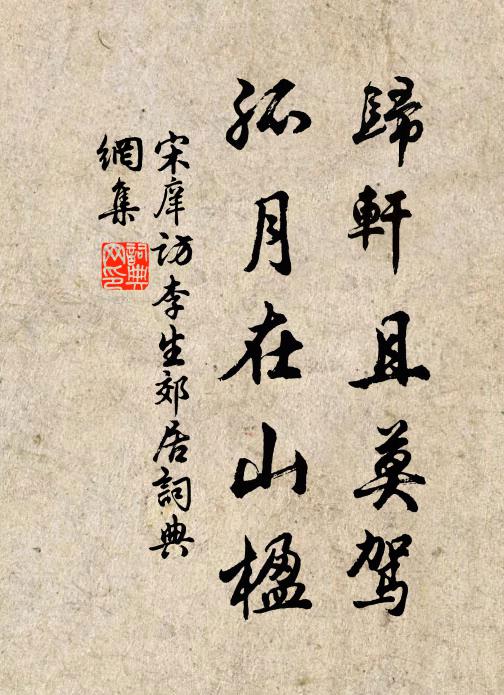 歸軒且莫駕
孤月在山楹
宋庠访李生郊居詞典
網集
詞典
网印